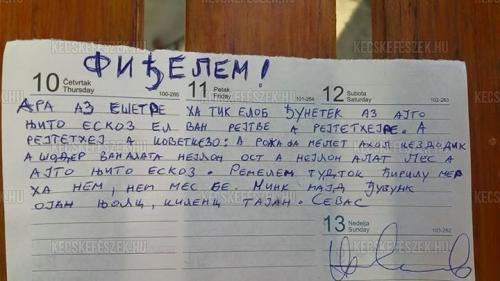 KECSKEFESZEK.HU
ФИЂЕЛЕМ!
10 Četvrtak Thursday 100-265
11 Petak Friday 101-264
12 Subota Saturday 102-263
АРА АЗ ЕШЕТРЕ ХА ТИК ЕЛОБ ЂУНЕТЕК АЗ АЈТО
ЊИТО ЕСКОЗ ЕЛ ВАН РЕЈТВЕ А РЕЈТЕТХЕЈРЕ. А
РЕЈТЕТХЕЈ А КОВЕТКЕЗО: А РОЖА ДА МЕЛЕТ АХОЛ КЕЗДОДИК
А ШОДЕР ВАН АЛАТА НЕЈЛОН ОСТ А НЕЈЛОН АЛАТ МЕС А
АЈТО ЊИТО ЕСКОЗ. РЕМЕЛЕМ ТУДТОК ЋИРИЛУ МЕР
ХА НЕМ, НЕМ МЕС БЕ. МИНК МАЈД ЂУВУНК
ОЈАН ЊОЛЦ, КИЛЕНЦ ТАЈАН. СЕВАС
13 Nedelja Sunday 103-262